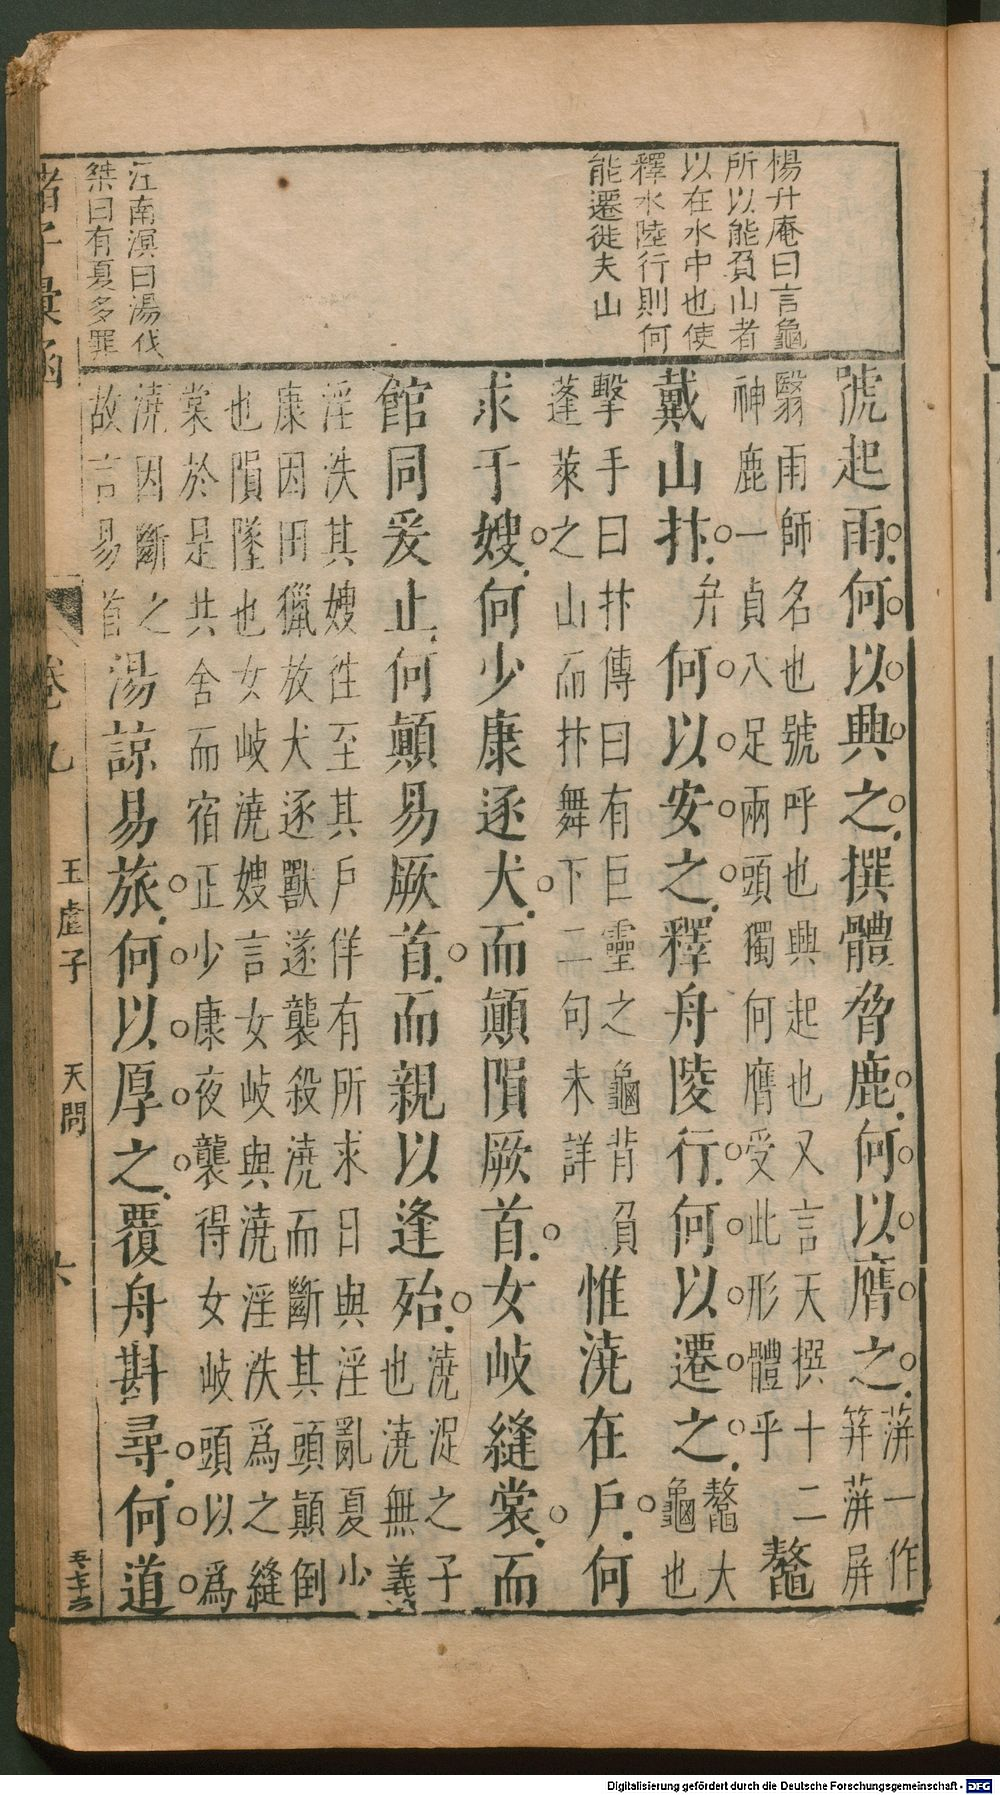 楊升庵曰言龜
所以能負山者
以在水中也使
釋水陸行則何
能遷徙夫山
江南溟曰湯伐
桀曰有夏多罪
號起雨何以興之撰體脅鹿何以膺之蓱一作
䓑蓱屏
翳雨師名也號呼也興起也又言天撰十二
神鹿一貞八足兩頭獨何膺受此形體乎
鼇
戴山抃弁何以安之釋舟陵行何以遷之鼇大
龜也
擊手曰抃傳曰有巨靈之龜背負
蓬萊之山而抃舞下二句未詳
惟澆在戶何
求于嫂何少康逐犬而顛隕厥首女岐縫裳而
館同爰止何顛易厥首而親以逢殆澆浞之子
也澆無義
淫泆其嫂徃至其戶佯有所求曰與淫亂夏少
康因田獵放犬逐獸遂襲殺澆而斷其頭顛倒
也隕墜也女岐澆嫂言女岐與澆淫泆爲之縫
裳於是共舍而宿正少康夜襲得女岐頭以爲
澆因斷之
故言易首
湯諒易旅何以厚之覆舟斟尋何道
諸子彙函
卷九
玉虛子
天問
六
Digitalisierung gefördert durch die Deutsche Forschungsgemeinschaft - DFG